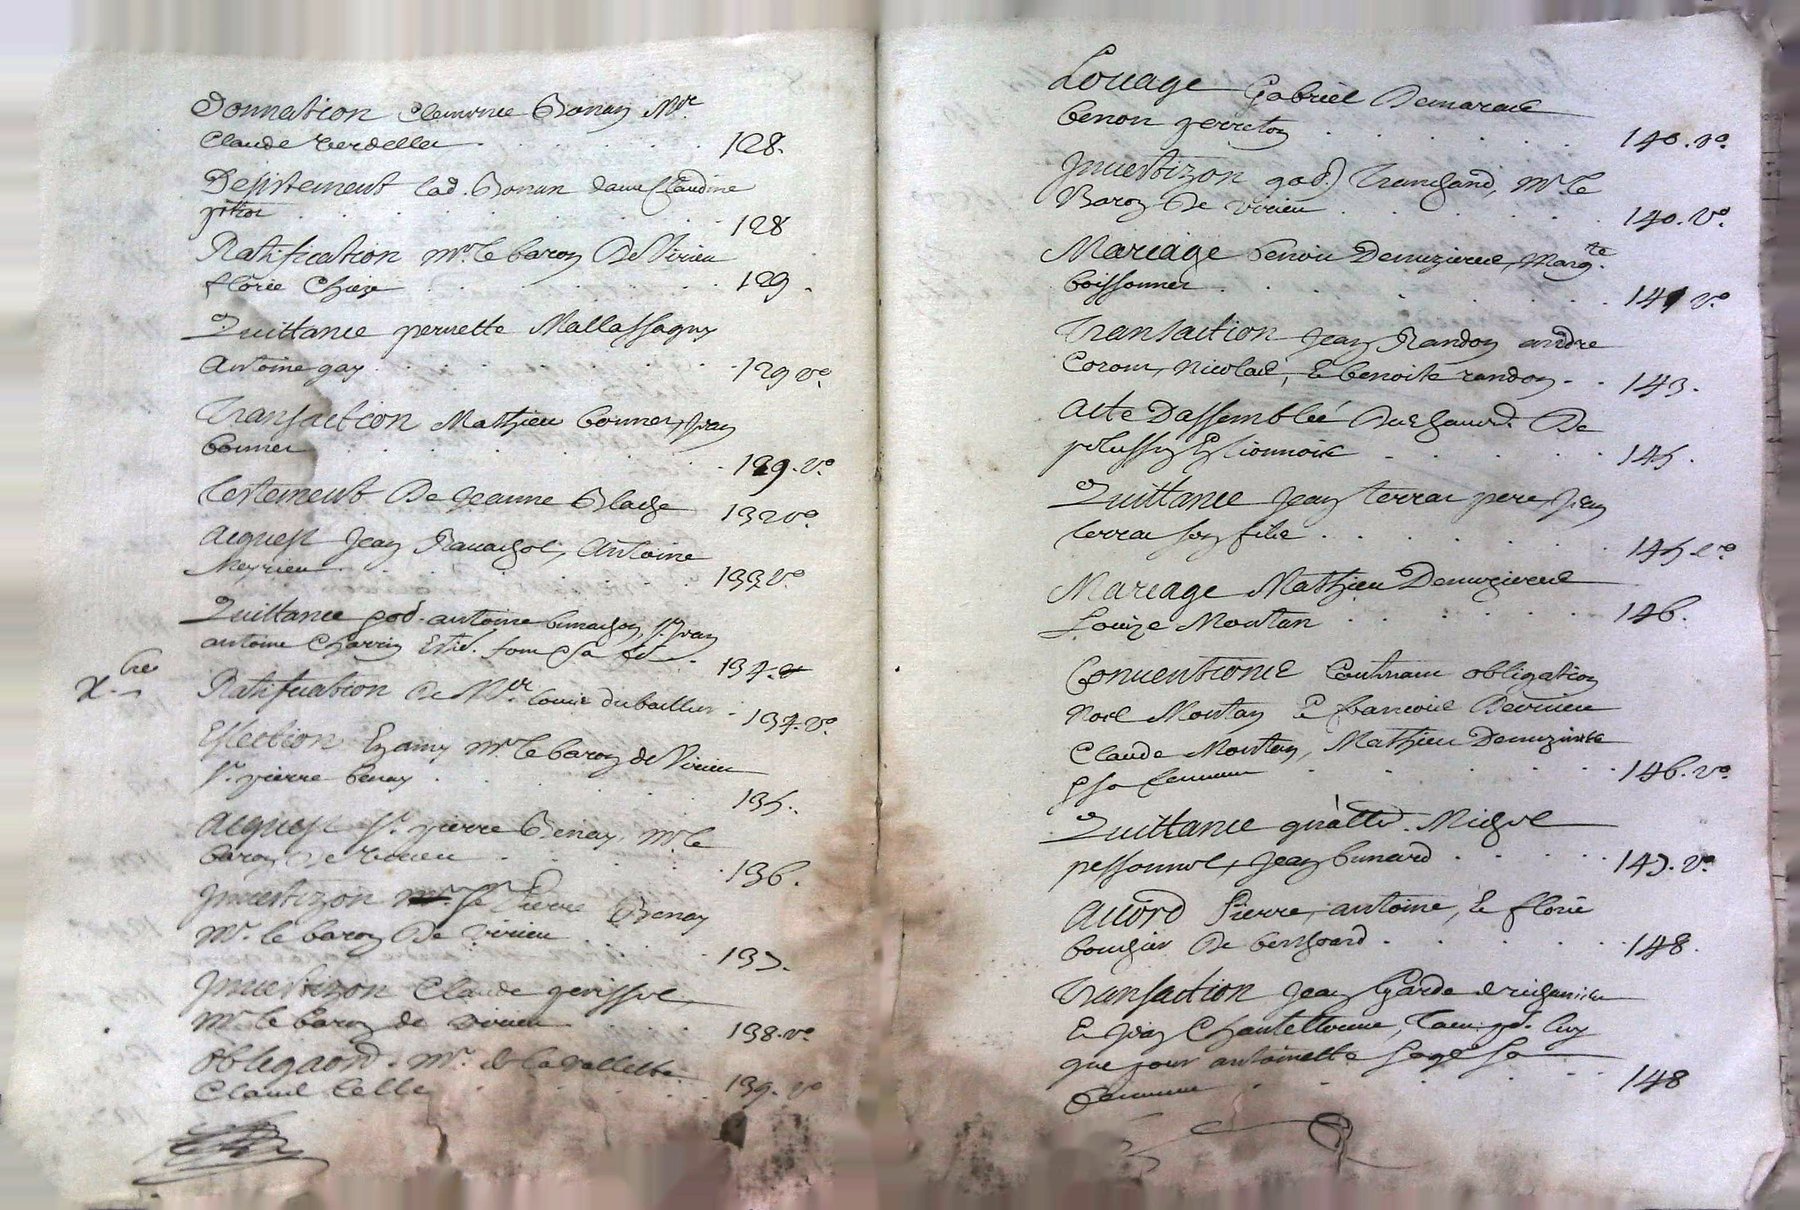 Donnation Clemence Bonay Mr.
Claude Verdellet 128.
Desistement lad. Bonan dame Claudine
pitiot 128
Ratification mr. le baron De Virieu
florie Chieze 129.
Quittance pernette Mallassagny
Antoine gay 129 vo.
Transaction Mathieu bonnet, Jean
bonnet 129. vo.
Testement De Jeanne Blache 132 vo.
Acquest Jean Ravachol, Antoine
Meyrieu 133 vo.
Quittance god. antoine bunachon, Sr. Jean
antoine Charrin 134.
xbre
Ratification De Mr. dubaillier 134. vo.
Eslection En amy mr. le baron de Virieu
Sr. pierre benay 135.
Acquest Sr. pierre Benay, mr. le
baron De virieu 136.
Jnvestizon Sr. Pierre Benay
Mr. le baron De virieu 137.
Jnvestizon Claude perissol
Mr. le baron de virieu 138. vo.
Obligaon. Mr. de la vallette
Claude Celle 139. vo
Louage Gabriel Demarais
benon perreton 140. vo.
Jnvestizon god. Tranchand, Mr. le
Baron De virieu 140. vo.
Mariage benoit Demiziereu, Margte.
boissonnet 141 vo.
Transaction Jean Randon andré
Coront, Nicolas, & benoite randon 143.
Acte Dassemblée De
pelussin En lionnois 145.
Quittance Jean terrat pere, Jean
terrat son fils 145 vo.
Mariage Mathieu Demiziereu
Louize Montan 146.
Conventions Contenant obligation
Noel Montan & francois Devirieu
Claude Montan, Mathieu Demiziereu
& sa femme 146. vo.
Quittance quàtté. Michel
pessonnel, Jean bunard 147. vo.
Accord Pierre, antoine, & florie
bourgier De 148.
Transaction Jean Garde
& Jean Chantelouve, tant pr. luy
que pour antoinette Sage sa
femme 148